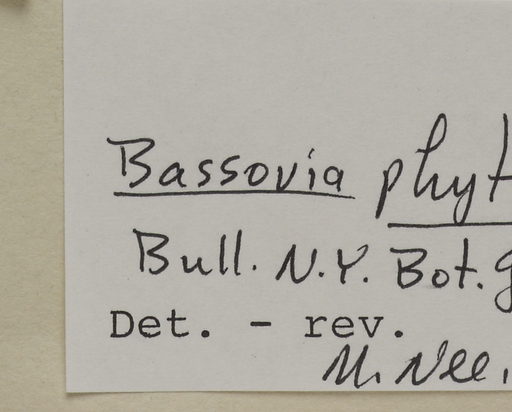 Bassovia phyt
Bull. N.Y. Bot. g
Det. - rev.
M. Nee,